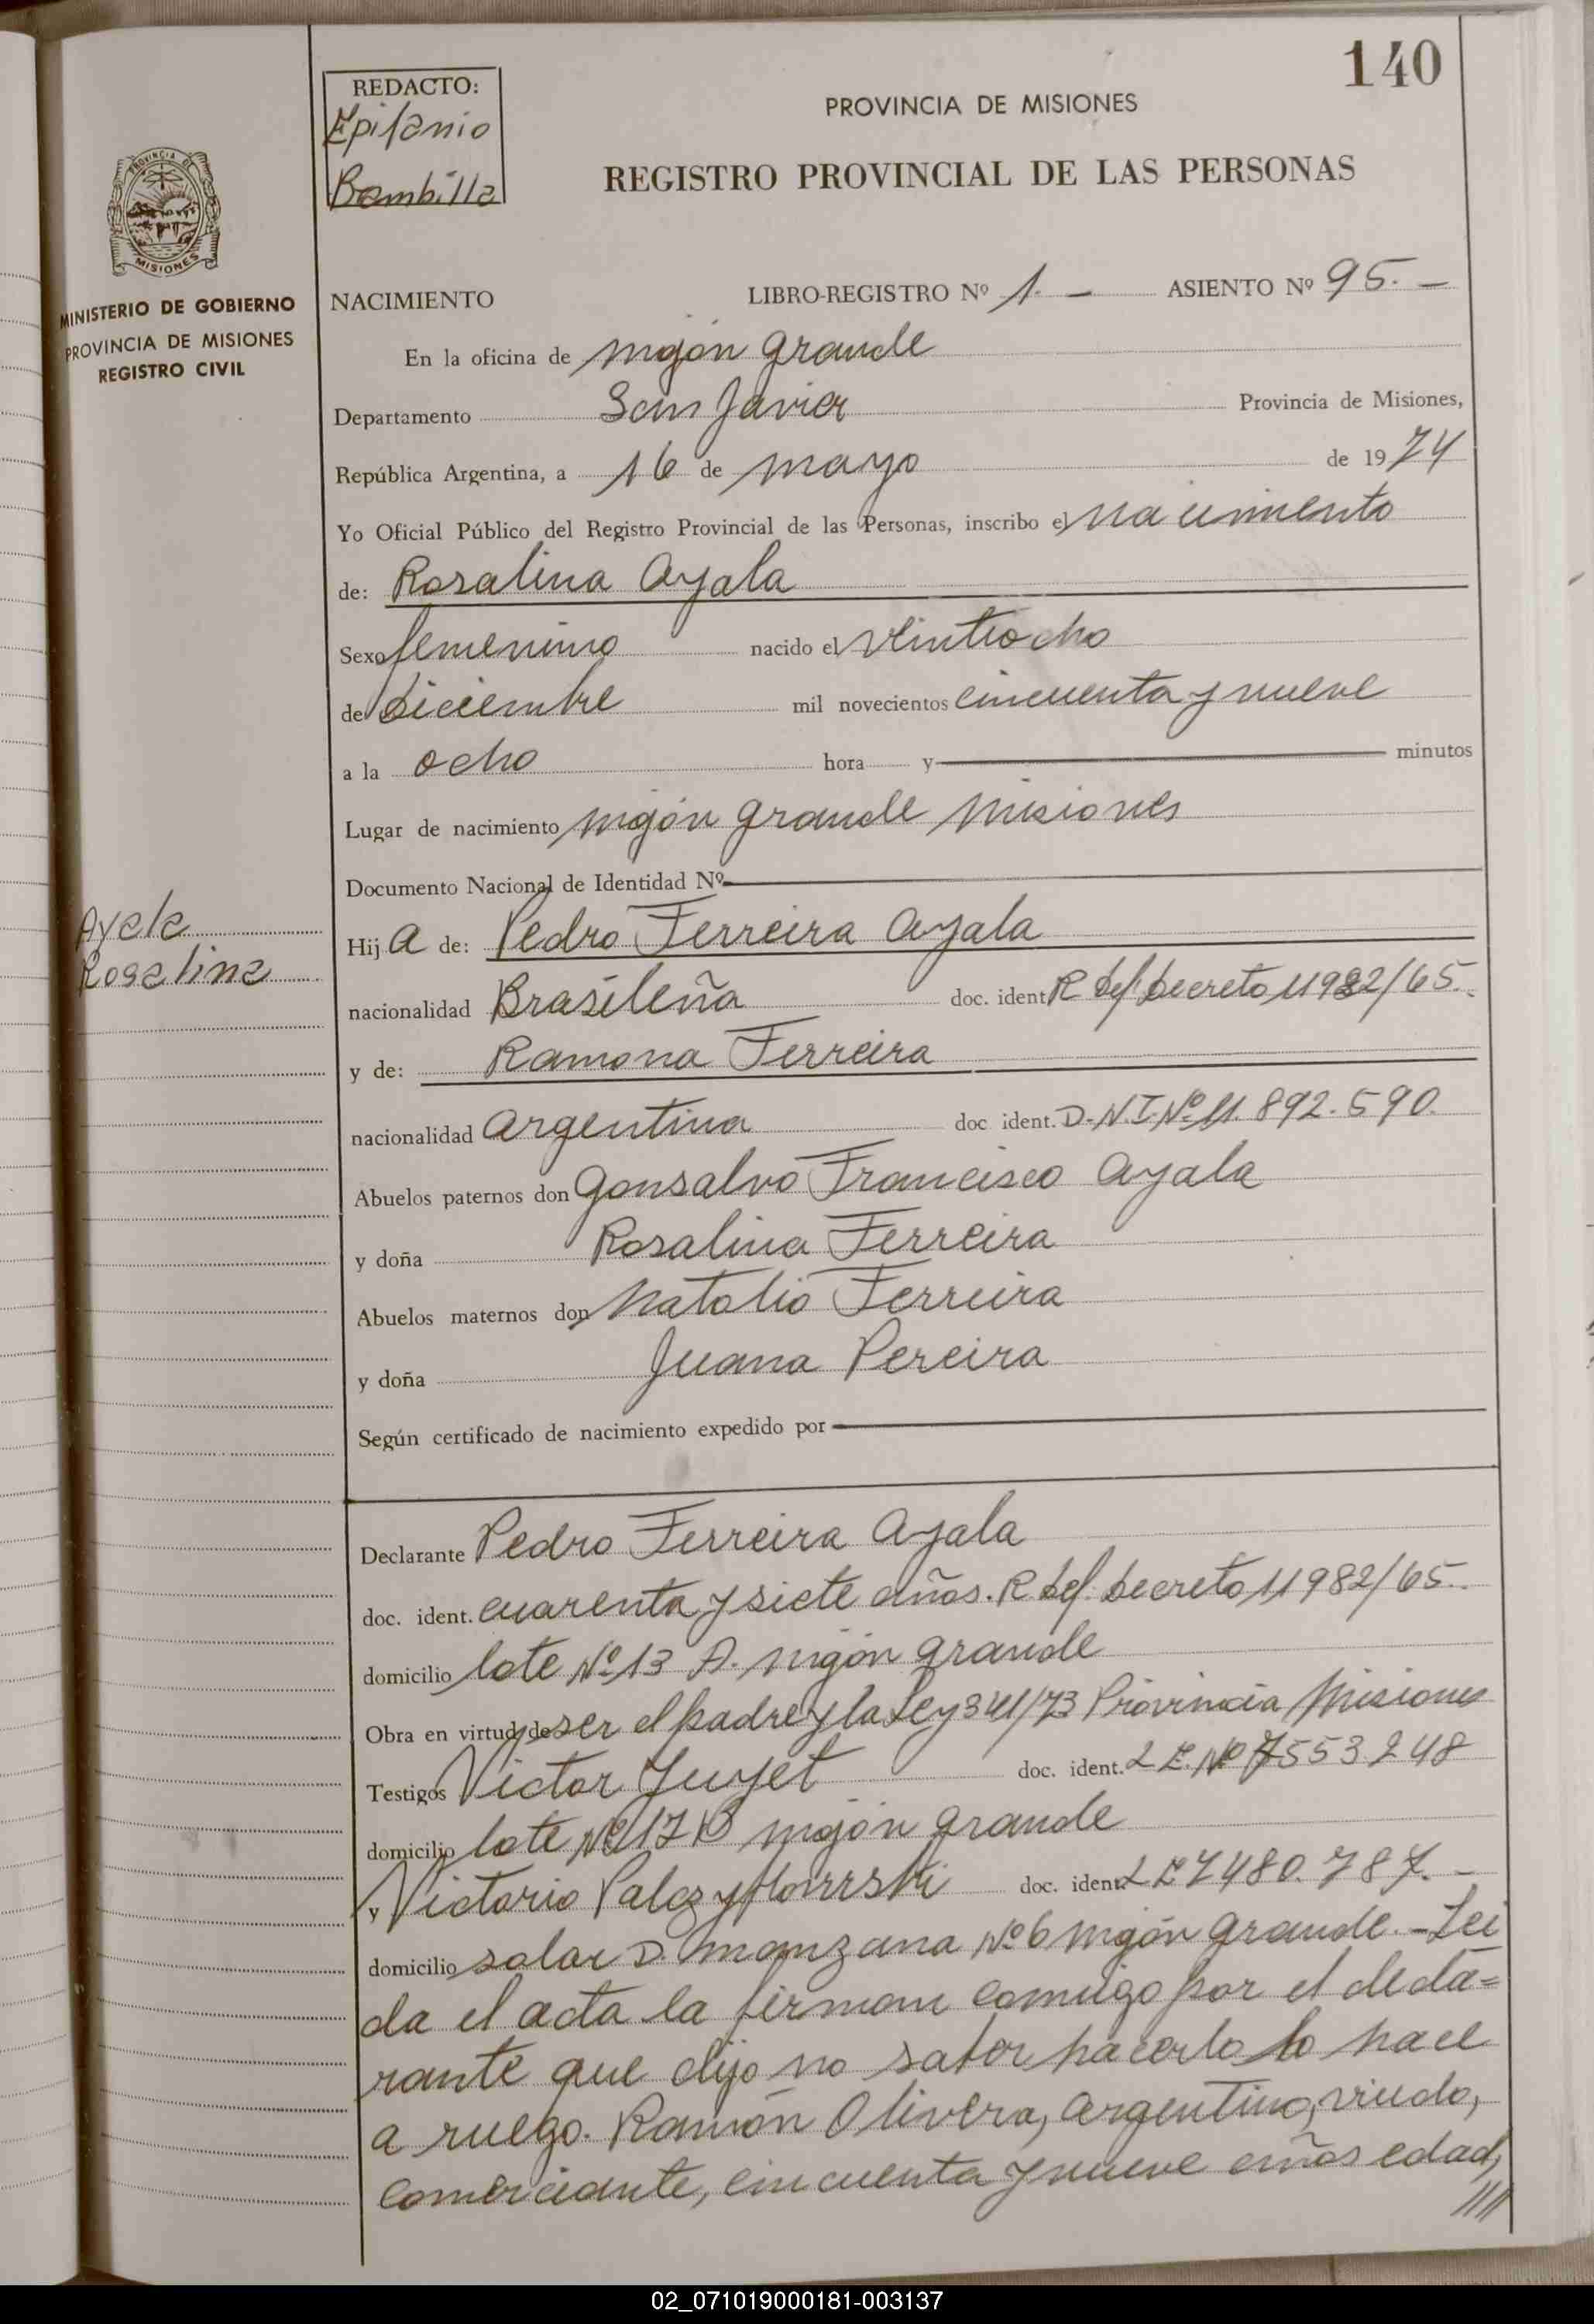 140
REDACTO:
Epifanio
Bambilla
PROVINCIA DE MISIONES
REGISTRO PROVINCIAL DE LAS PERSONAS
PROVINCIA DE
MISIONES
MINISTERIO DE GOBIERNO
PROVINCIA DE MISIONES
REGISTRO CIVIL
NACIMIENTO LIBRO-REGISTRO Nº 1. — ASIENTO Nº 95. —
En la oficina de mojón grande
Departamento San Javier Provincia de Misiones,
República Argentina, a 16 de mayo de 1974
Yo Oficial Público del Registro Provincial de las Personas, inscribo el nacimiento
de: Rosalina Ayala
Sexo femenino nacido el veintiocho
de diciembre mil novecientos cincuenta y nueve
a la ocho hora y minutos
Lugar de nacimiento mojón grande misiones
Documento Nacional de Identidad Nº
Ayala
Rosalina
Hija de: Pedro Ferreira Ayala
nacionalidad Brasileña doc. ident R def. Decreto 11982/65.
y de: Ramona Ferreira
nacionalidad argentina doc ident. D.N.I. Nº 11.892.590.
Abuelos paternos don Gonsalvo Francisco Ayala
y doña Rosalina Ferreira
Abuelos maternos don Natalio Ferreira
y doña Juana Pereira
Según certificado de nacimiento expedido por
Declarante Pedro Ferreira Ayala
doc. ident. cuarenta y siete años. R def. Decreto 11982/65.
domicilio lote Nº 13 A. mojón grande
Obra en virtud de ser el padre y la Ley 341/73 Provincia Misiones
Testigos Victor doc. ident. L E. Nº 7553248
domicilio lote Nº 17 B mojón grande
y Victorio doc. ident. L E 7480.787. —
domicilio solar D. manzana Nº 6 mojón grande. — Lei
da el acta la firman comigo por el decla=
rante que dijo no saber hacerlo lo hace
a ruego. Ramón Olivera, argentino, viudo,
comerciante, cincuenta y nueve años edad,
////
02_071019000181-003137